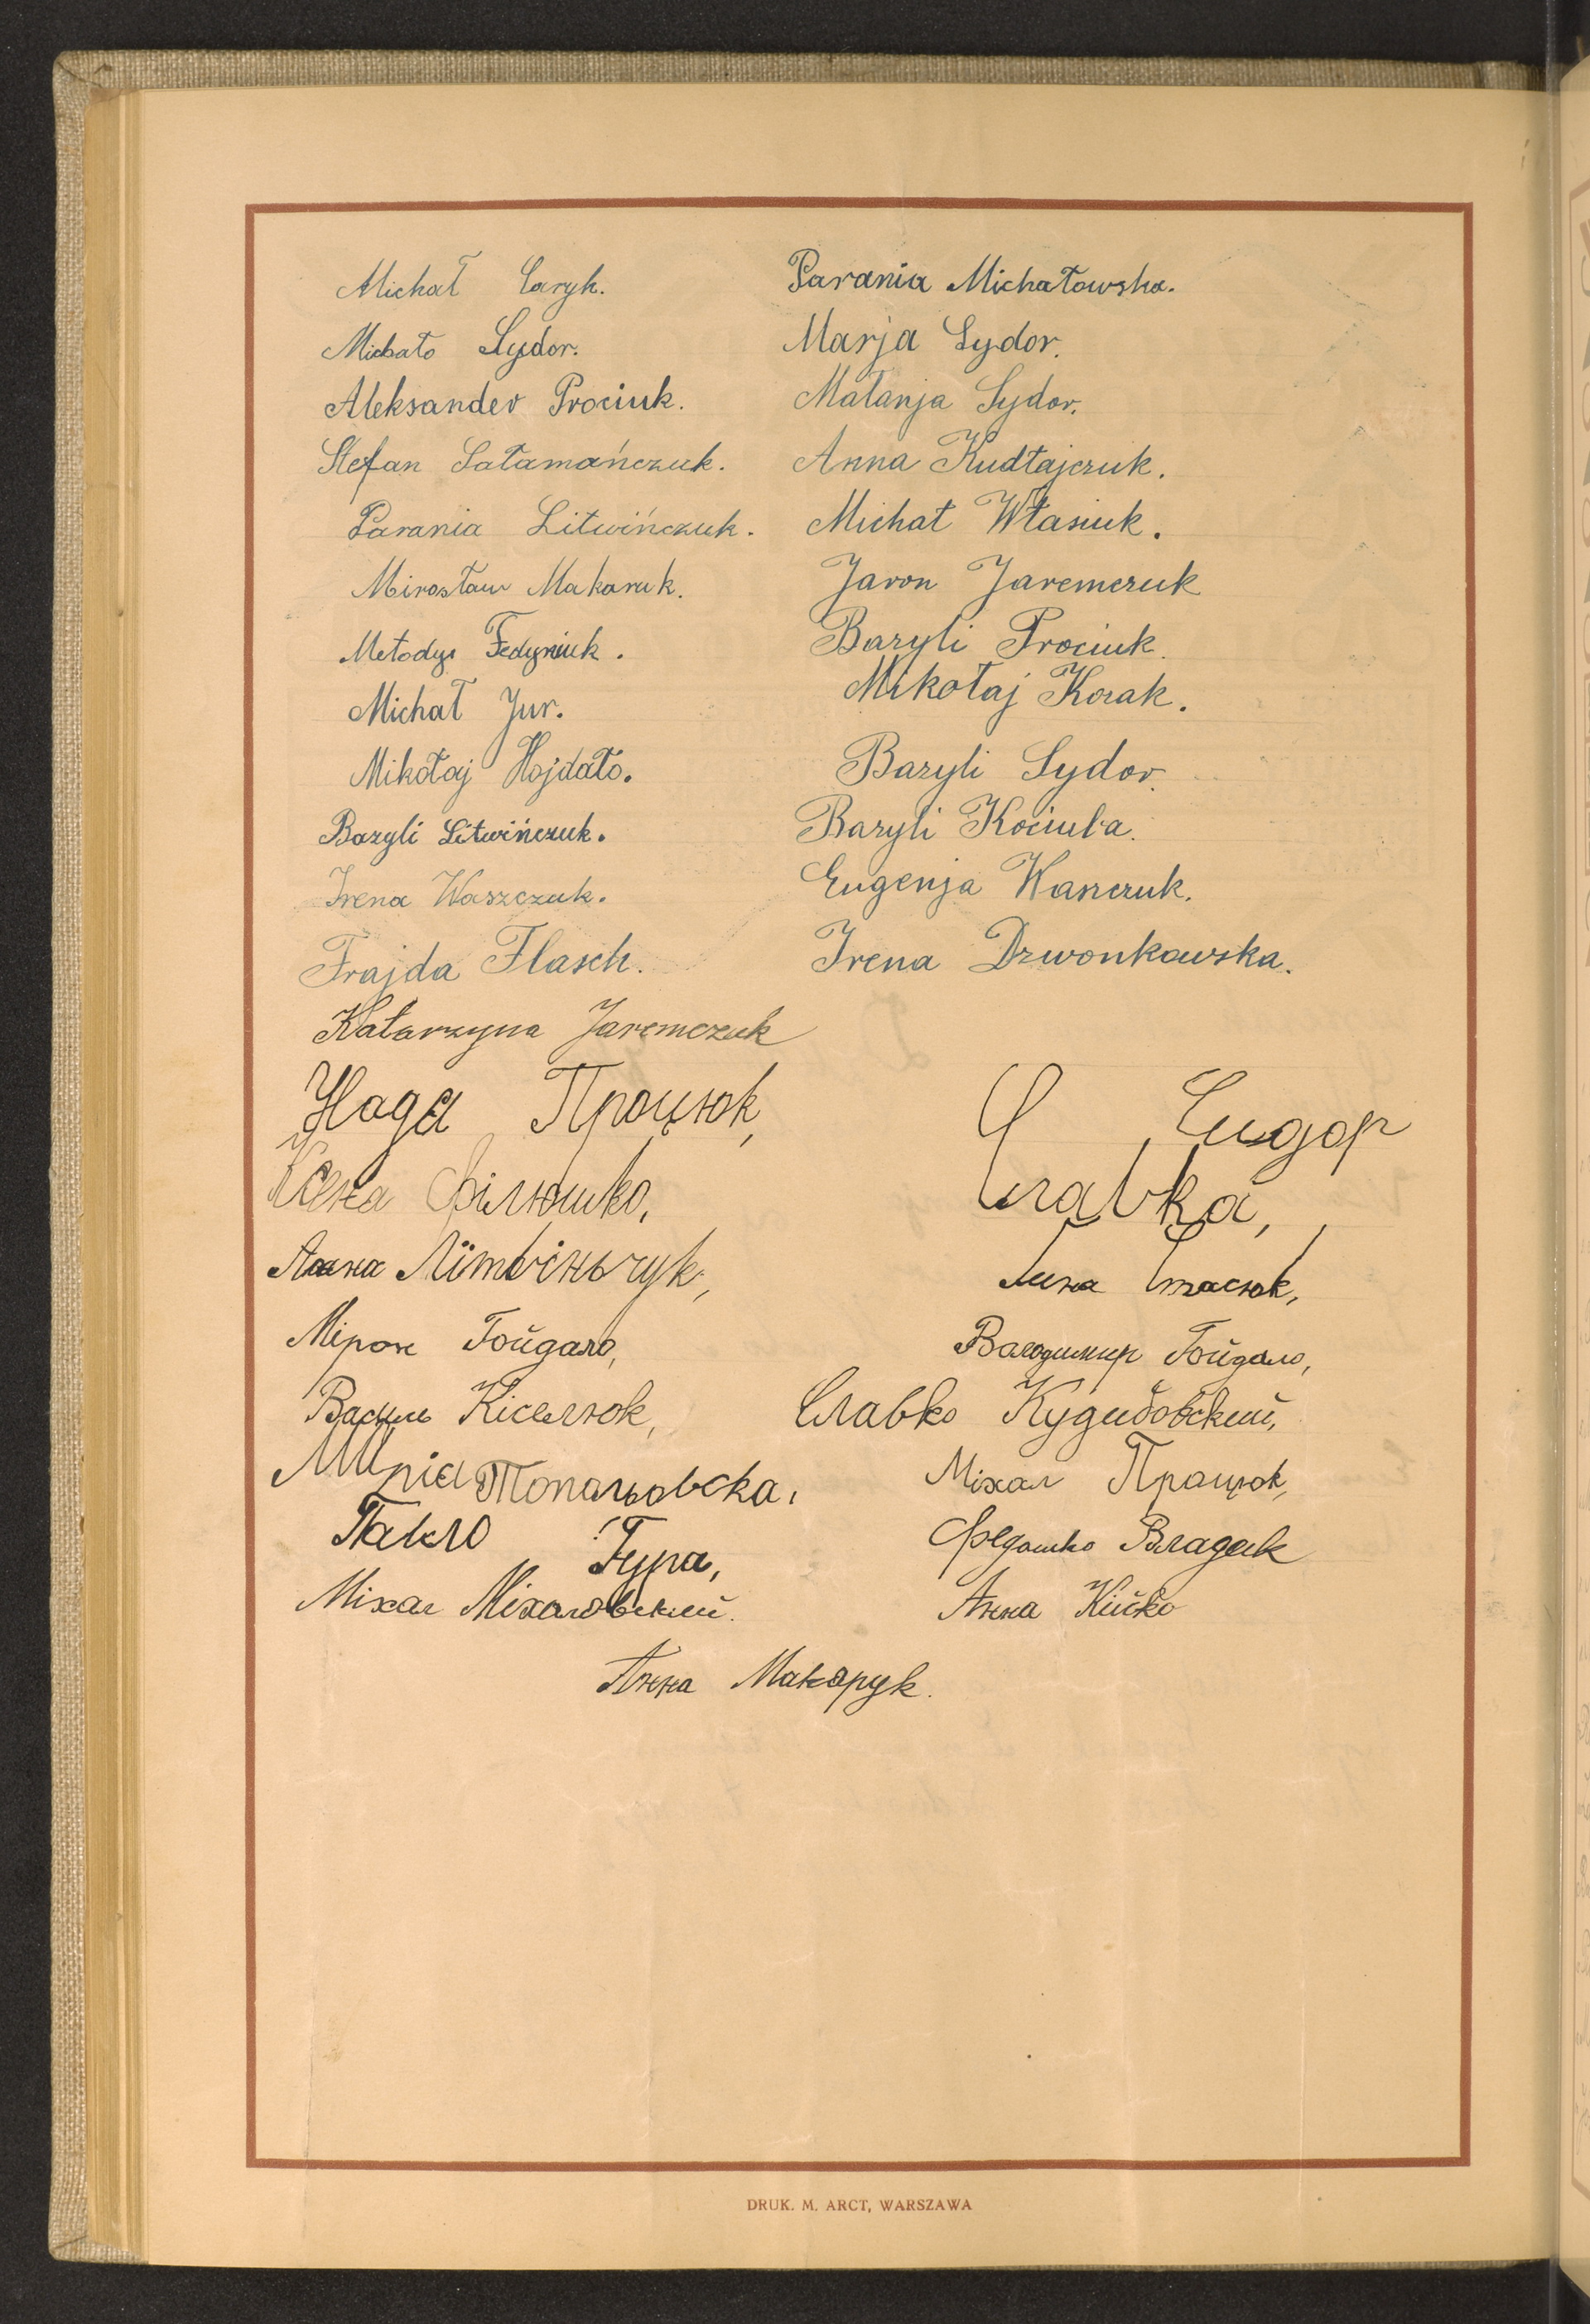 Michał Caryk.
Michało Sydor.
Aleksander Prociuk.
Stefan Sałamańczuk.
Parania Litwińczuk.
Mirosław Makaruk.
Metody Fedyniuk.
Michał Jur.
Mikołaj Hojdało.
Bazyli Litwińczuk.
Irena Waszczuk.
Frajda Flasch.
Katarzyna Jaremczuk
Parania Michałowska.
Marja Sydor.
Małanja Sydor.
Anna Kudłajczuk.
Michał Własiuk.
Jaron Jaremczuk
Bazyli Prociuk.
Mikołaj Kozak.
Bazyli Sydor.
Bazyli Kociuba.
Eugenja Waszczuk.
Irena Dzwonkowska.
Надя Процюк,
Ксена Філюшко,
Анна Літвіньчук,
Мірон Гойдало,
Василь Кіселюк,
Марія Топальовска,
Павло Гура,
Міхал Міхаловский.
Сидор
Славка,
Стасюк,
Володимир Гойдало,
Славко Кудибовский,
Міхал Працюк,
Федошко Владик
Анна Кійко
Анна Макарук.
DRUK. M. ARCT, WARSZAWA